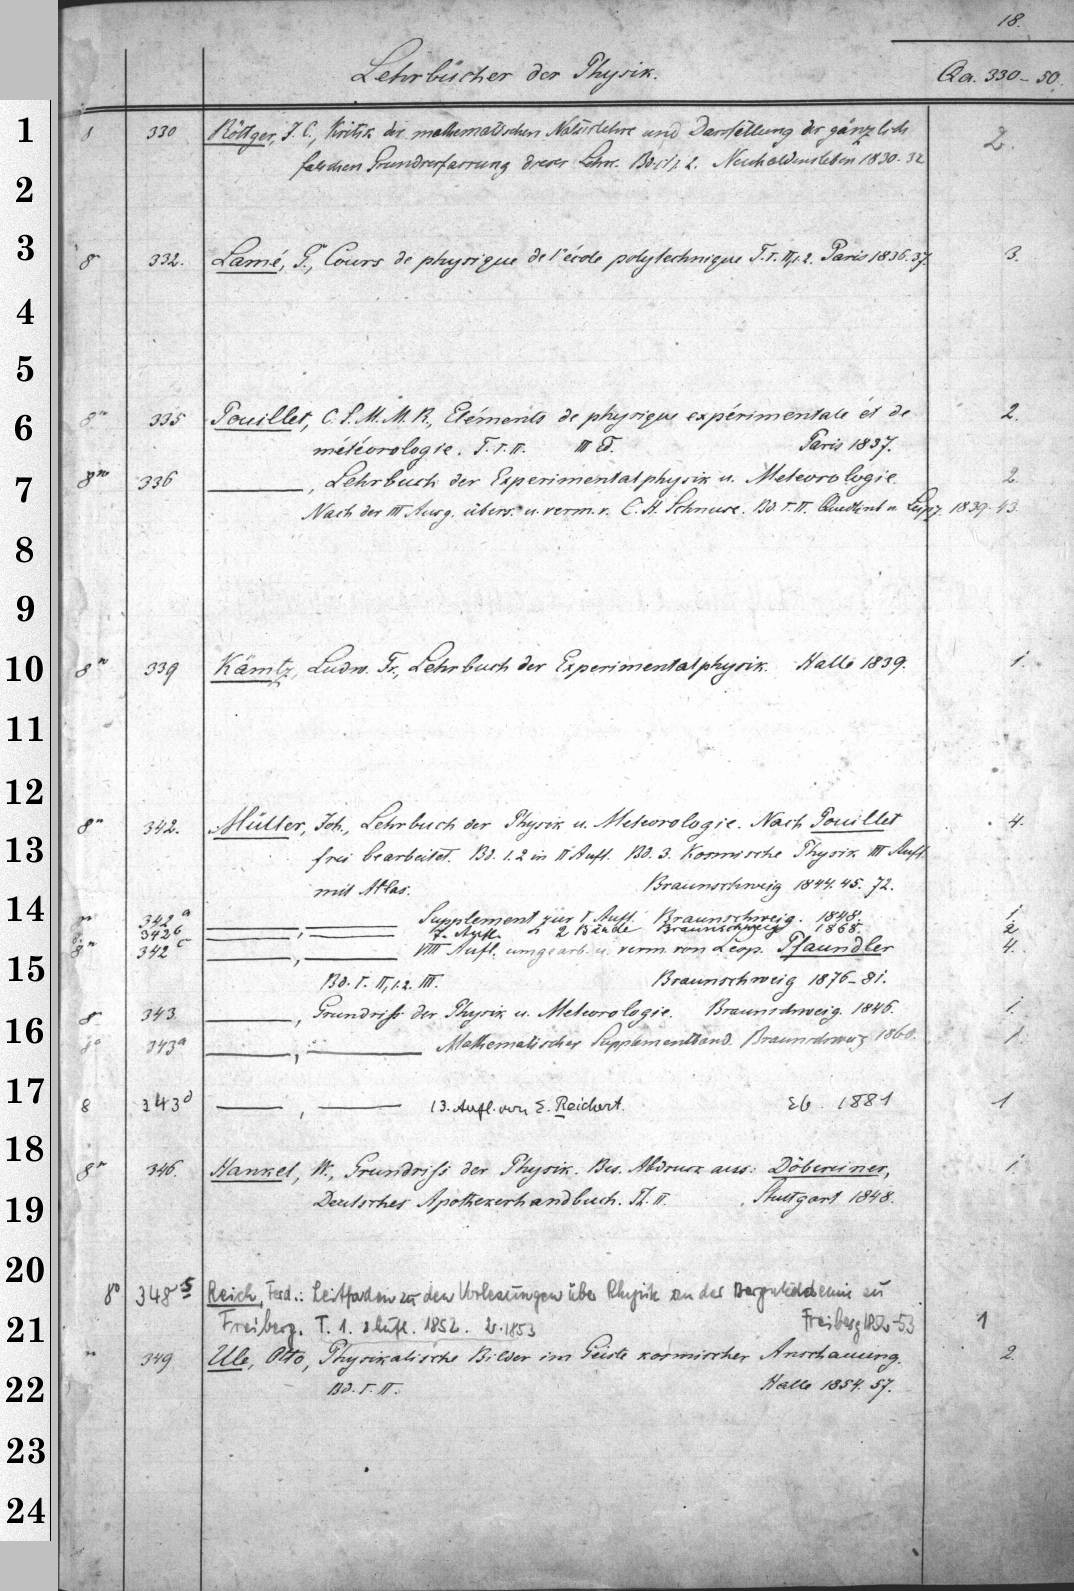 18.
Lehrbücher der Physik. Qa. 330-50.
1
8 330 Röttger, J. C., Kritik der mathematischen Naturlehre und Darstellung der gänzlich 2.
falschen Grundverfassung dieser Lehre. Bd. 1, 2. Neuhaldensleben 1830-32
2
3
8° 332. Lamé, G., Cours de physique de l'école polytechnique T. I. II,1.2. Paris 1836.37. 3.
4
5
6
8° 335 Pouillet, C. S. M. M. R., Eléments de physique expérimentale et de 2.
météorologie. T. I. II. III Ed. Paris 1837.
7
8° 336 ———, Lehrbuch der Experimentalphysik u. Meteorologie. 2.
Nach der III Ausg. übers. u. verm. v. C. H. Schnuse. Bd. I. II. Quedlinb. u. Leipz. 1839-43.
8
9
10
8° 339 Kämtz, Ludw. Fr., Lehrbuch der Experimentalphysik. Halle 1839. 1.
11
12
8° 342. Müller, Joh., Lehrbuch der Physik u. Meteorologie. Nach Pouillet 4.
13
frei bearbeitet. Bd. 1.2 in II Aufl. Bd. 3. Kosmische Physik III Aufl.
mit Atlas. Braunschweig 1844.45.72.
14
342a ———, ——— Supplement zur I Aufl. Braunschweig. 1848. 1.
342b ———, ——— 7. Aufl. 2 Bände Braunschweig 1868. 2
8° 342c ———, ——— VIII Aufl. umgearb. u. verm. von Leop. Pfaundler 4.
15
Bd. I. II,1.2. III. Braunschweig 1876-81.
16
8° 343 ———, Grundriß der Physik u. Meteorologie. Braunschweig. 1846. 1.
8° 343a ———, ——— Mathematischer Supplementband. Braunschweig 1860. 1.
17
8 343d ———, ——— 13. Aufl. von E. Reichert. Eb. 1881 1
18
8° 346 Hankel, W., Grundriß der Physik. Bes. Abdruck aus: Döbereiner, 1.
19
Deutsches Apothekerhandbuch. Th. II. Stuttgart 1848.
20
8° 348⁵ Reich, Ferd.: Leitfaden zu den Vorlesungen über Physik an der Bergakademie zu
21
Freiberg. T. 1. 2 Aufl. 1852. 2. 1853 Freiberg 1852-53 1
349 Ule, Otto, Physikalische Bilder im Geiste kosmischer Anschauung. 2.
22
Bd. I. II. Halle 1854.57.
23
24